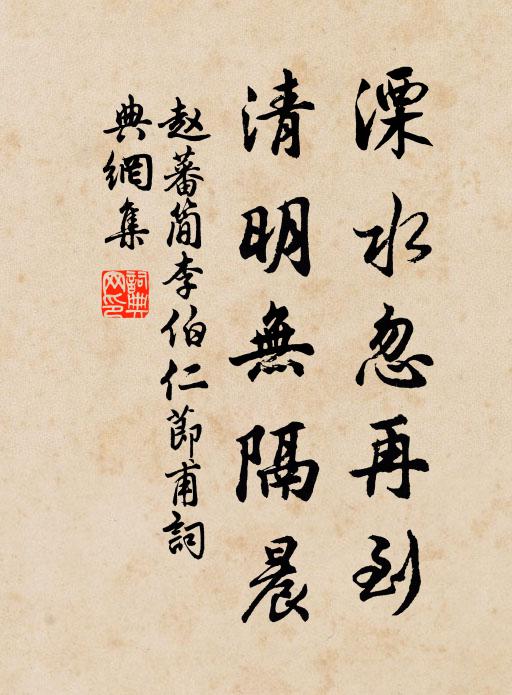 溧水忽再到
清明無隔晨
赵蕃簡李伯仁節甫詞
典網集
詞典网印